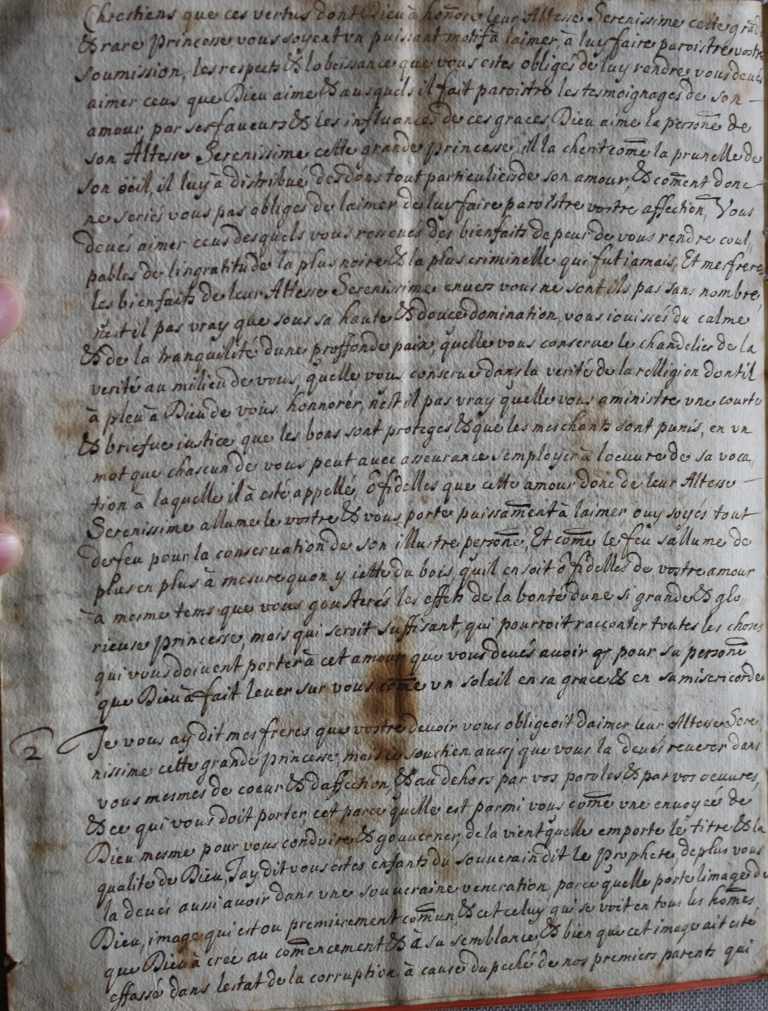 Chrestiens que ces vertus dont Dieu à honnoré leur Altesse Serenissime cette grād
& rare Princesse vous soyent vn puissant motif à laimer, à luy faire paroistre vostre
soumission, les respects & lobeissance que vous estes obligés de luy rendre, vous deués
aimer ceus que Dieu aime & ausquels il fait paroistre les tesmoignages de son
amour par ses faueurs & les influances de ces graces, Dieu aime la personē de
son Altesse Serenissime cette grande princesse, il la cherit comē la prunelle de
son oëil, il luy à distribué des dons tout particuliers de son amour, & comēnt donc
ne seriés vous pas obligés de laimer de luy faire paroistre vostre affection, Vous
deués aimer ceus desquels vous receués des bienfaits de peur de vous rendre coul
pables de lingratitude la plus noire & la plus criminelle qui fut iamais, Et mes freres
les bienfaits de leur Altesse Serenissime enuers vous ne sont ils pas sans nombre,
nest il pas vray que sous sa haute & douce domination, vous iouissés du calme
& de la tranquilité dune proffonde paix, quelle vous conserue le chandelier de la
verité au milieu de vous, quelle vous conserue dans la verité de la relligion dont il
à pleu à Dieu de vous honnorer, nest il pas vray quelle vous aministre vne courte
& briefue iustice que les bons sont protegés & que les meschants sont punis, en vn
mot que chascun de vous peut auec asseurance semployer à loeuure de sa voca
tion à laquelle il à esté appellé, ô fidelles que cette amour donc de leur Altesse
Serenissime allume le vostre & vous porte puissamēnt à laimer ouy soyes tout
de feu pour la conseruation de son illustre personē, Et comē le feu sallume de
plus en plus à mesure quon y iette du bois quil en soit ô fidelles de vostre amour
à mesme tems que vous gousterés les effets de la bonté dune si grande & glo
rieuse princesse, mais qui seroit suffisant, qui pourroit racconter toutes les choses
qui vous doiuent porter à cet amour que vous deués auoir pour sa personē
que Dieu à fait leuer sur vous comē vn soleil en sa grace & en sa misericorde
2 Je vous ay dit mes freres que vostre deuoir vous obligeoit daimer leur Altesse Sere
nissime cette grande princesse, mais ie soustien aussy que vous la deués reuerer dans
vous mesmes de coeur & daffection, & au dehors par vos paroles & par vos oeuures,
& ce qui vous doit porter cet parce quelle est parmi vous comē vne enuoyée de
Dieu mesme pour vous conduire & gouuerner, de la vient quelle emporte le titre & la
qualité de Dieu, Jay dit vous estes enfants du souuerain dit le prophete, de plus vous
la deués aussi auoir dans vne souueraine veneration, parce quelle porte limage de
Dieu, image qui est ou premierement comun & cet celuy qui se voit en tous les homēs
que Dieu à créé au comēncement & à sa semblance, & bien que cet image ait esté
effassé dans lestat de la corruption à cause du peché de nos premiers parents qui